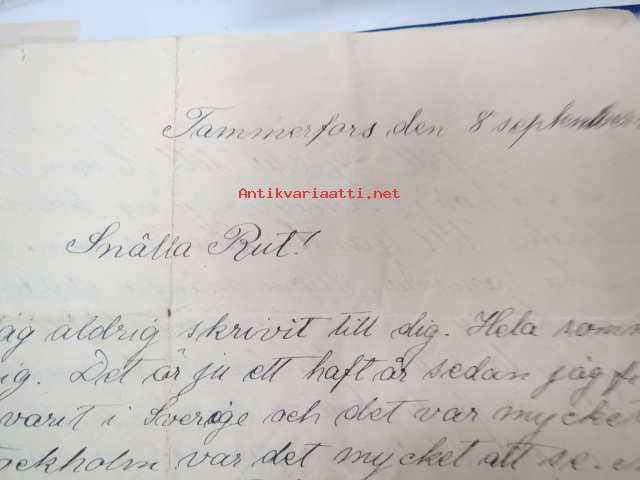 Tammerfors den 8 september
Antikvariaatti.net
Snälla Rut!
jag aldrig skrivit till dig. Hela somm
ig. Det är ju ett halft år sedan jag f
varit i Sverige och det var mycket
tockholm var det mycket att se.